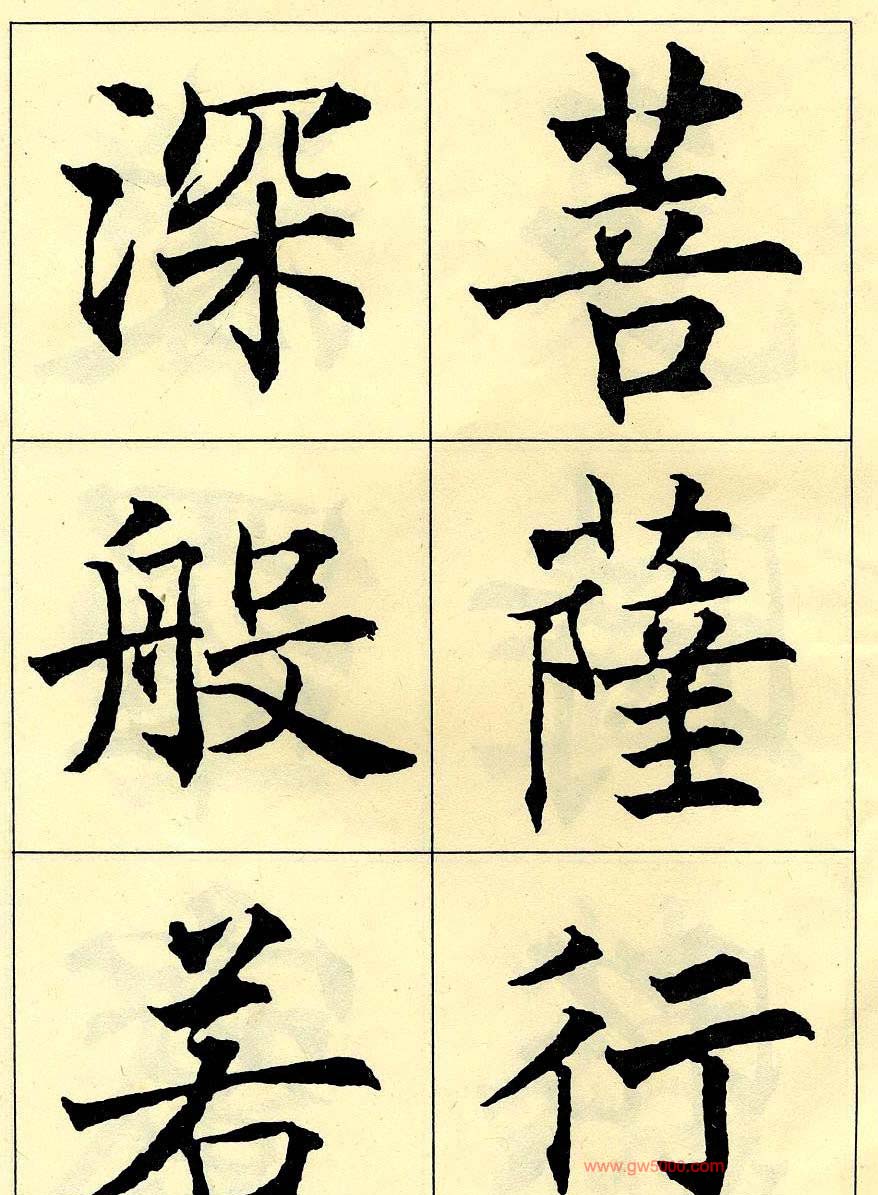 菩薩行
深般若
www.gw5000.com